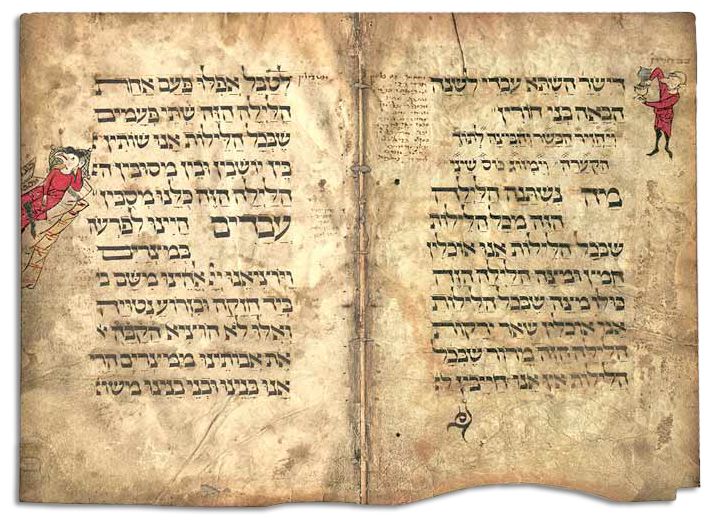 די ישר השתא עבדי לשנה
הבאה בני חורין
ויחזיר הבשר והביצה לתוך
הקערה וימזוג כוס שיני
מה נשתנה הלילה
הזה מכל הלילות
שבכל הלילות אנו אוכלין
חמץ ומצה הלילה הזה
כולו מצה שבכל הלילות
אנו אוכלין שאר ירקות
הלילה הזה מרור שבכל
הלילות אין אנו חייבין
לטבל אפלו פעם אחת
הלילה הזה שתי פעמים
שבכל הלילות אנו שותין
בין יושבין ובין מסובין ה
הלילה הזה כלנו מסבין
עבדים היינו לפרעה
במצרים
ויוציאנו יי אלהינו משם ב
ביד חזקה ובזרוע נטויה
ואלו לא הוציא הקבה א
את אבותינו ממצרים הרי
אנו בנינו ובני בנינו